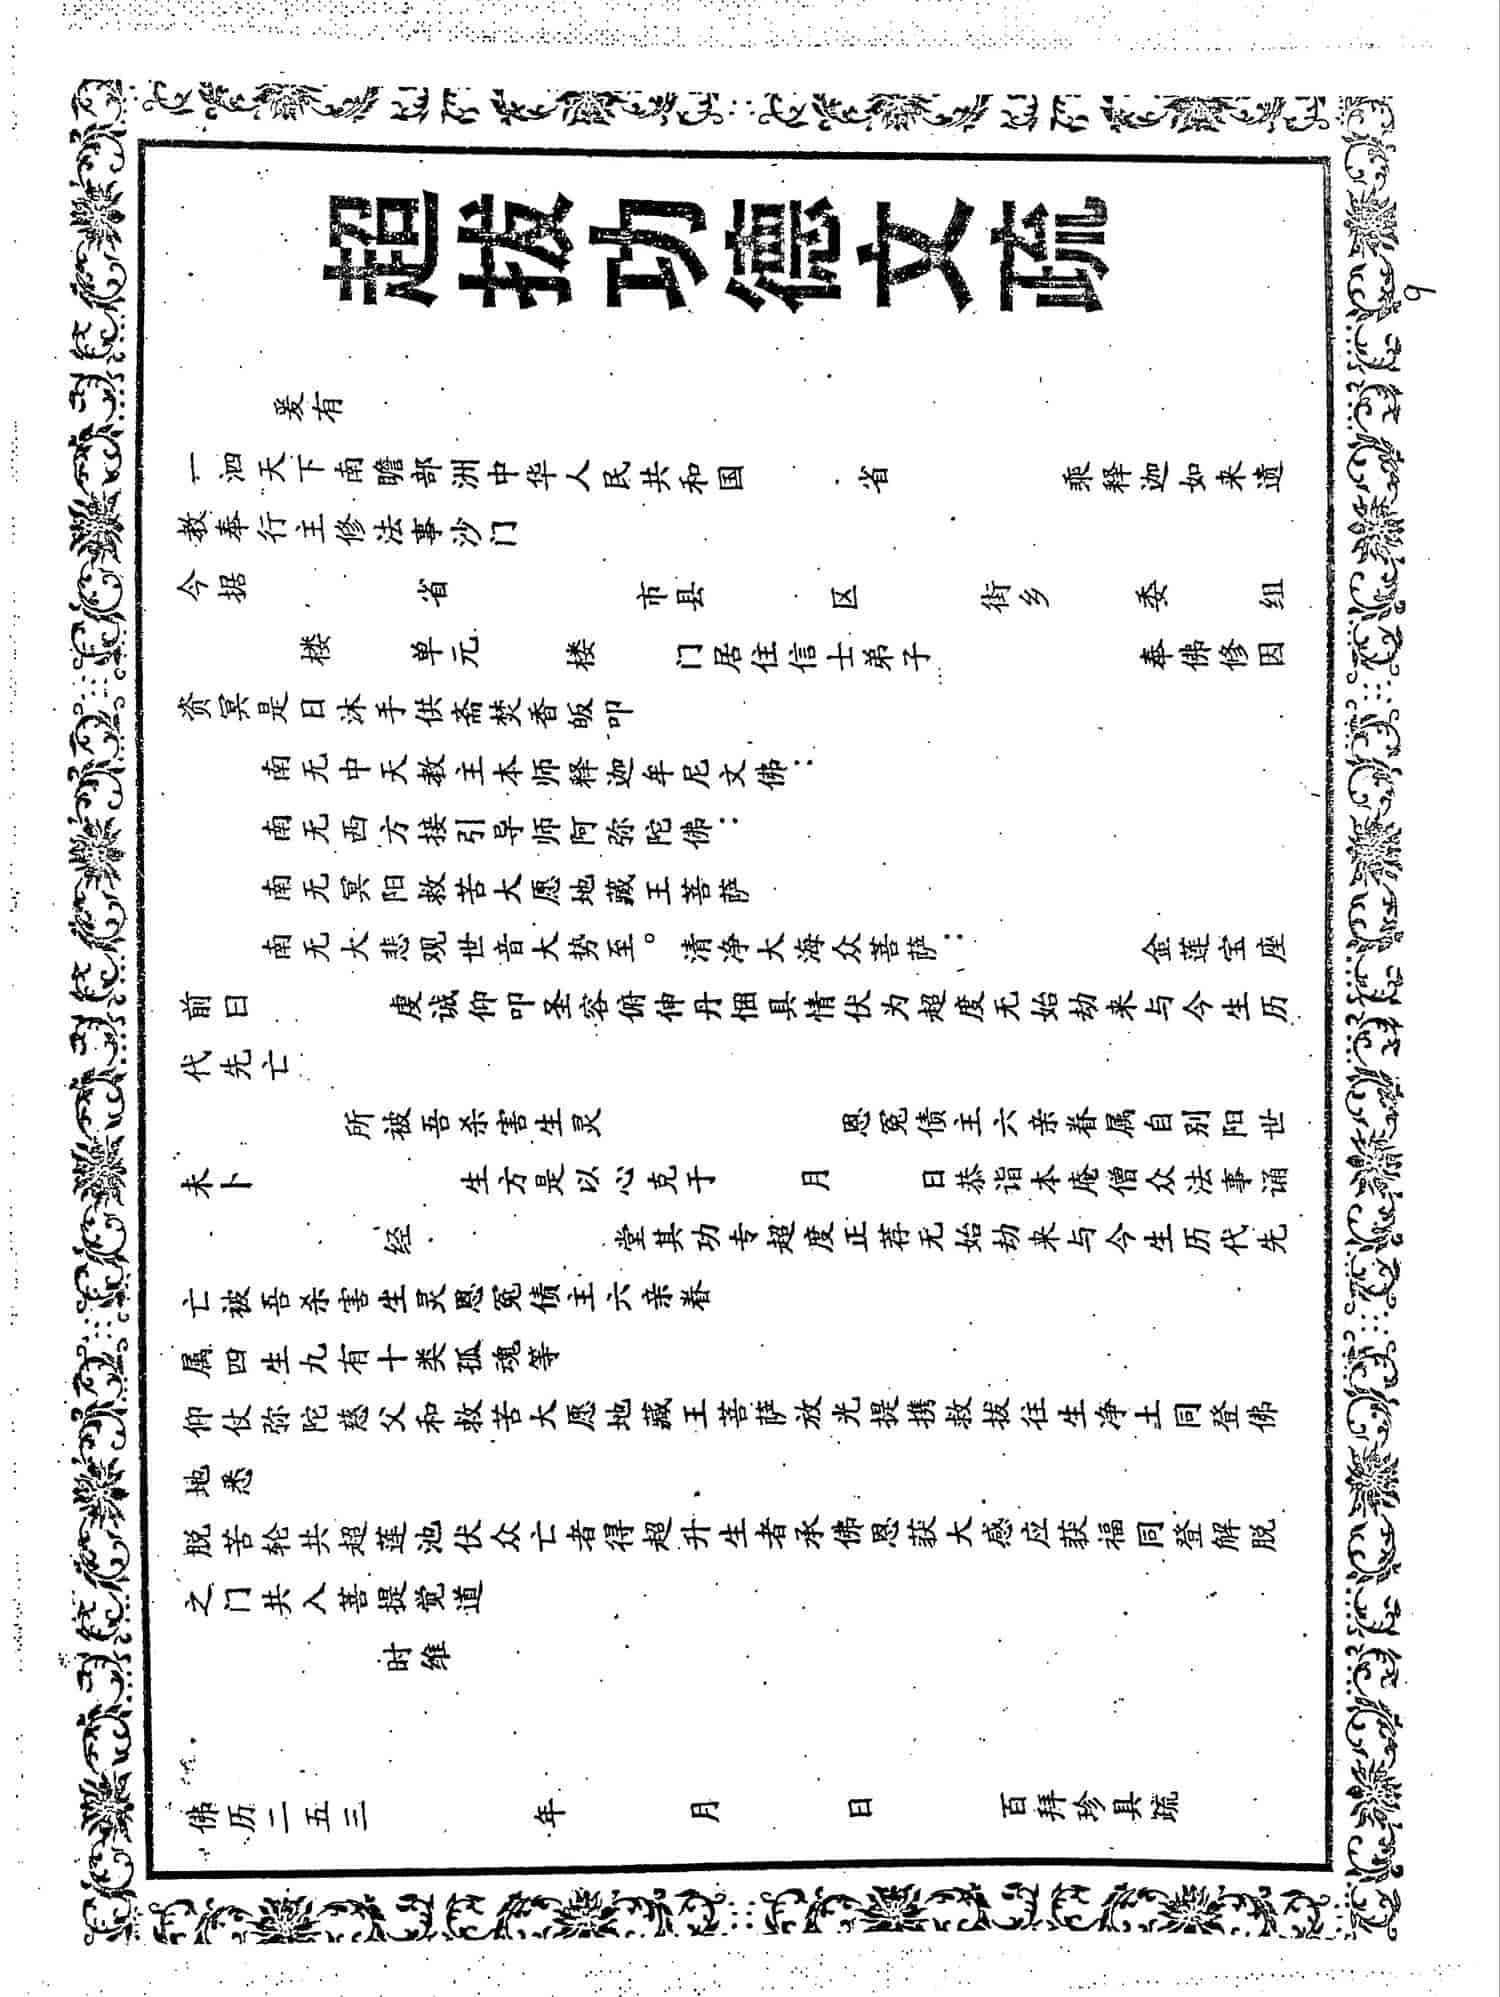 超拔功德文疏
爰有
一泗天下南瞻部洲中华人民共和国 省 乘释迦如来遗
教奉行主修法事沙门
今据 省 市县 区 街乡 委 组
楼 单元 楼 门居住信士弟子 奉佛修因
资冥是日沐手供斋焚香皈叩
南无中天教主本师释迦牟尼文佛：
南无西方接引导师阿弥陀佛：
南无冥阳救苦大愿地藏王菩萨
南无大悲观世音大势至。清净大海众菩萨： 金莲宝座
前曰 虔诚仰叩圣容俯伸丹悃具情伏为超度无始劫来与今生历
代先亡
所被吾杀害生灵 恩冤债主六亲眷属自别阳世
未卜 生方是以心克于 月 日恭诣本庵僧众法事诵
经 堂其功专超度正荐无始劫来与今生历代先
亡被吾杀害生灵恩冤债主六亲眷
属四生九有十类孤魂等
仰仗弥陀慈父和救苦大愿地藏王菩萨放光提携救拔往生净土同登佛
地悉
脱苦轮共超莲池伏众亡者得超升生者承佛恩获大感应获福同登解脱
之门共入菩提觉道
时维
佛历二五三 年 月 日 百拜珍具疏
9